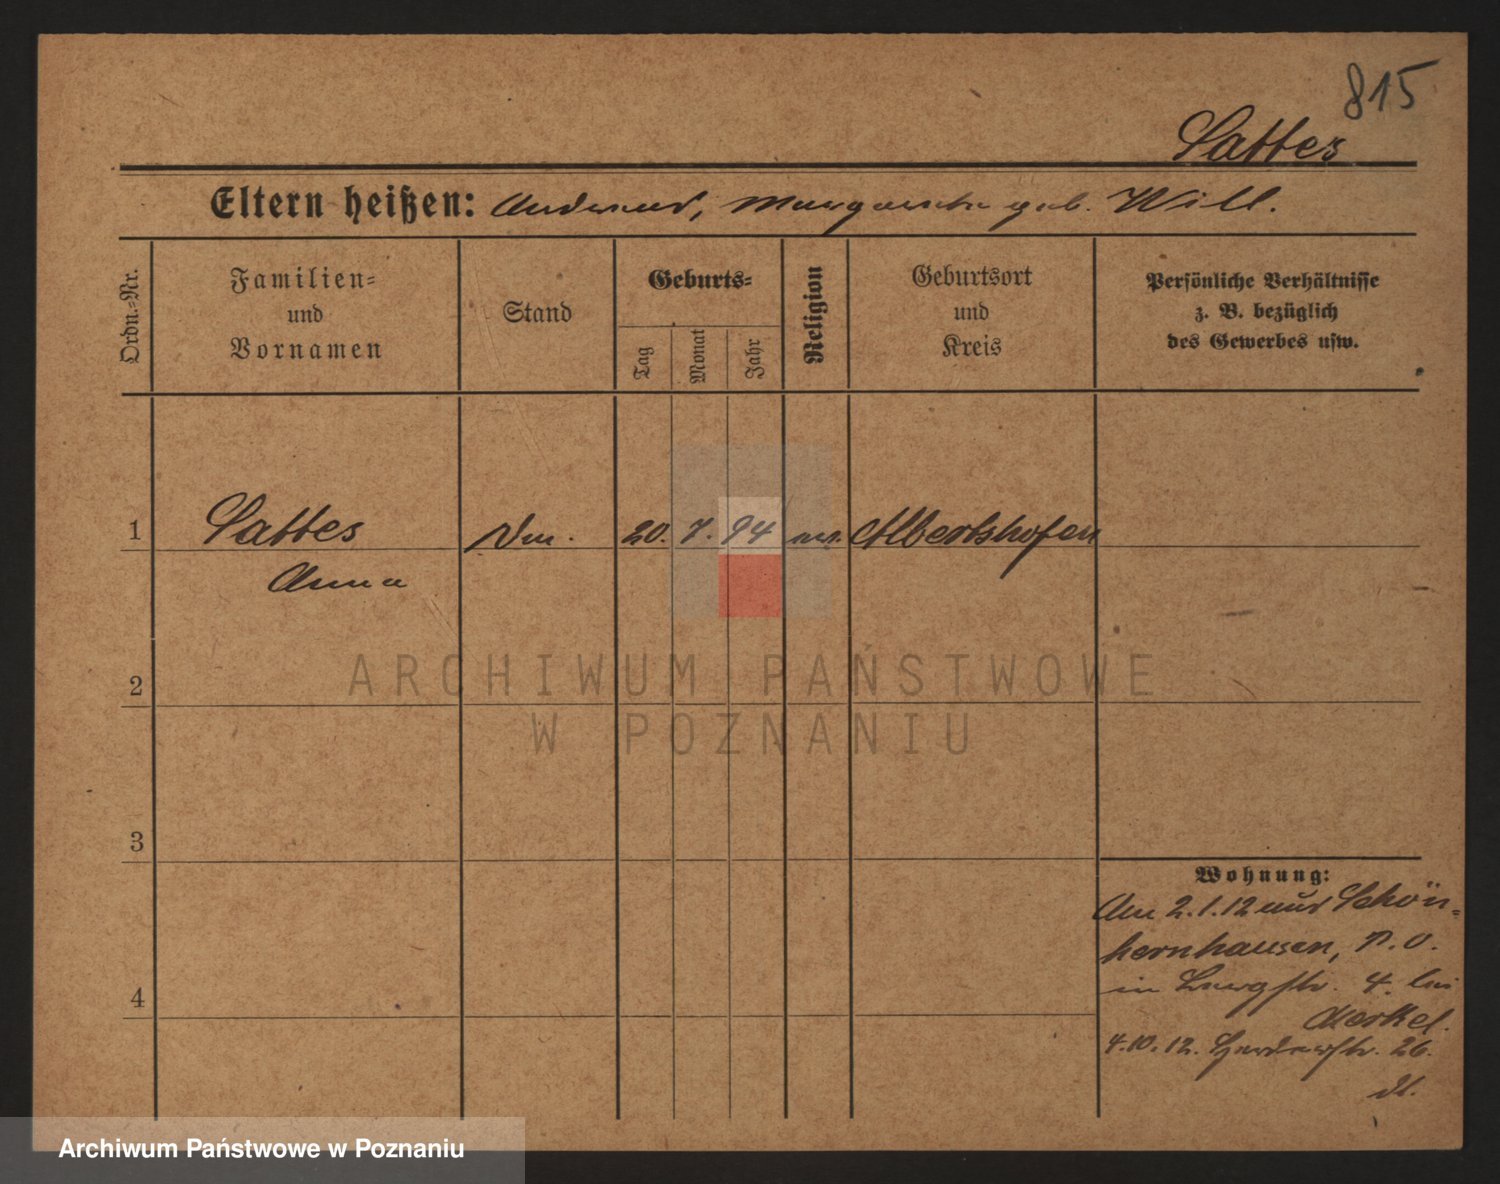 815
Sattes
Eltern heißen: Andreas, Margarethe geb. Will.
Ordn.-Nr.
Familien-
und
Vornamen
Stand
Geburts-
Tag
Monat
Jahr
Religion
Geburtsort
und
Kreis
Persönliche Verhältnisse
z. B. bezüglich
des Gewerbes usw.
1 Sattes 20. 7. 94 Albertshofen
Anna
2
3
4
ARCHIWUM PAŃSTWOWE
W POZNANIU
Wohnung:
Am 2.1.12 aus Schön-
hernhausen, P. O.
in 4. bei
Merkel.
4.10.12. 26.
Archiwum Państwowe w Poznaniu